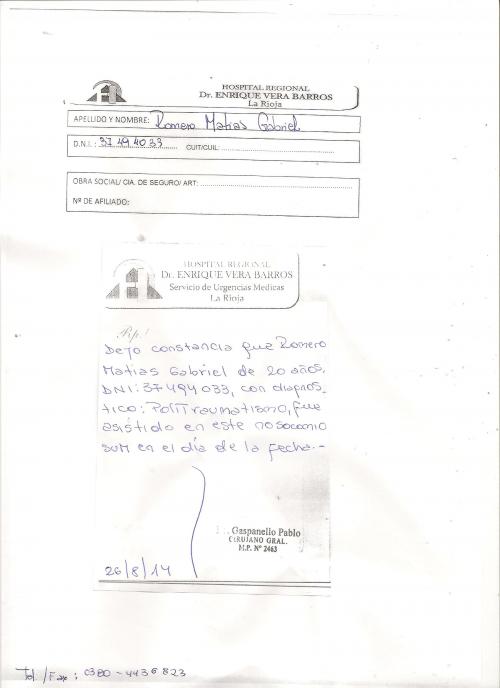 HOSPITAL REGIONAL
Dr. ENRIQUE VERA BARROS
La Rioja
APELLIDO Y NOMBRE: Romero Matias Gabriel
D.N.I.: 37494033 CUIT/CUIL:
OBRA SOCIAL/ CIA. DE SEGURO/ ART:
Nº DE AFILIADO:
HOSPITAL REGIONAL
Dr. ENRIQUE VERA BARROS
Servicio de Urgencias Medicas
La Rioja
Rp/
Dejo constancia que Romero
Matias Gabriel de 20 años,
DNI: 37494033, con diagnos-
tico: Politraumatismo, fue
asistido en este nosocomio
SUM en el día de la fecha.-
Gaspanello Pablo
CIRUJANO GRAL.
M.P. Nº 2463
26/8/14
Tel./Fax: 0380-4436823